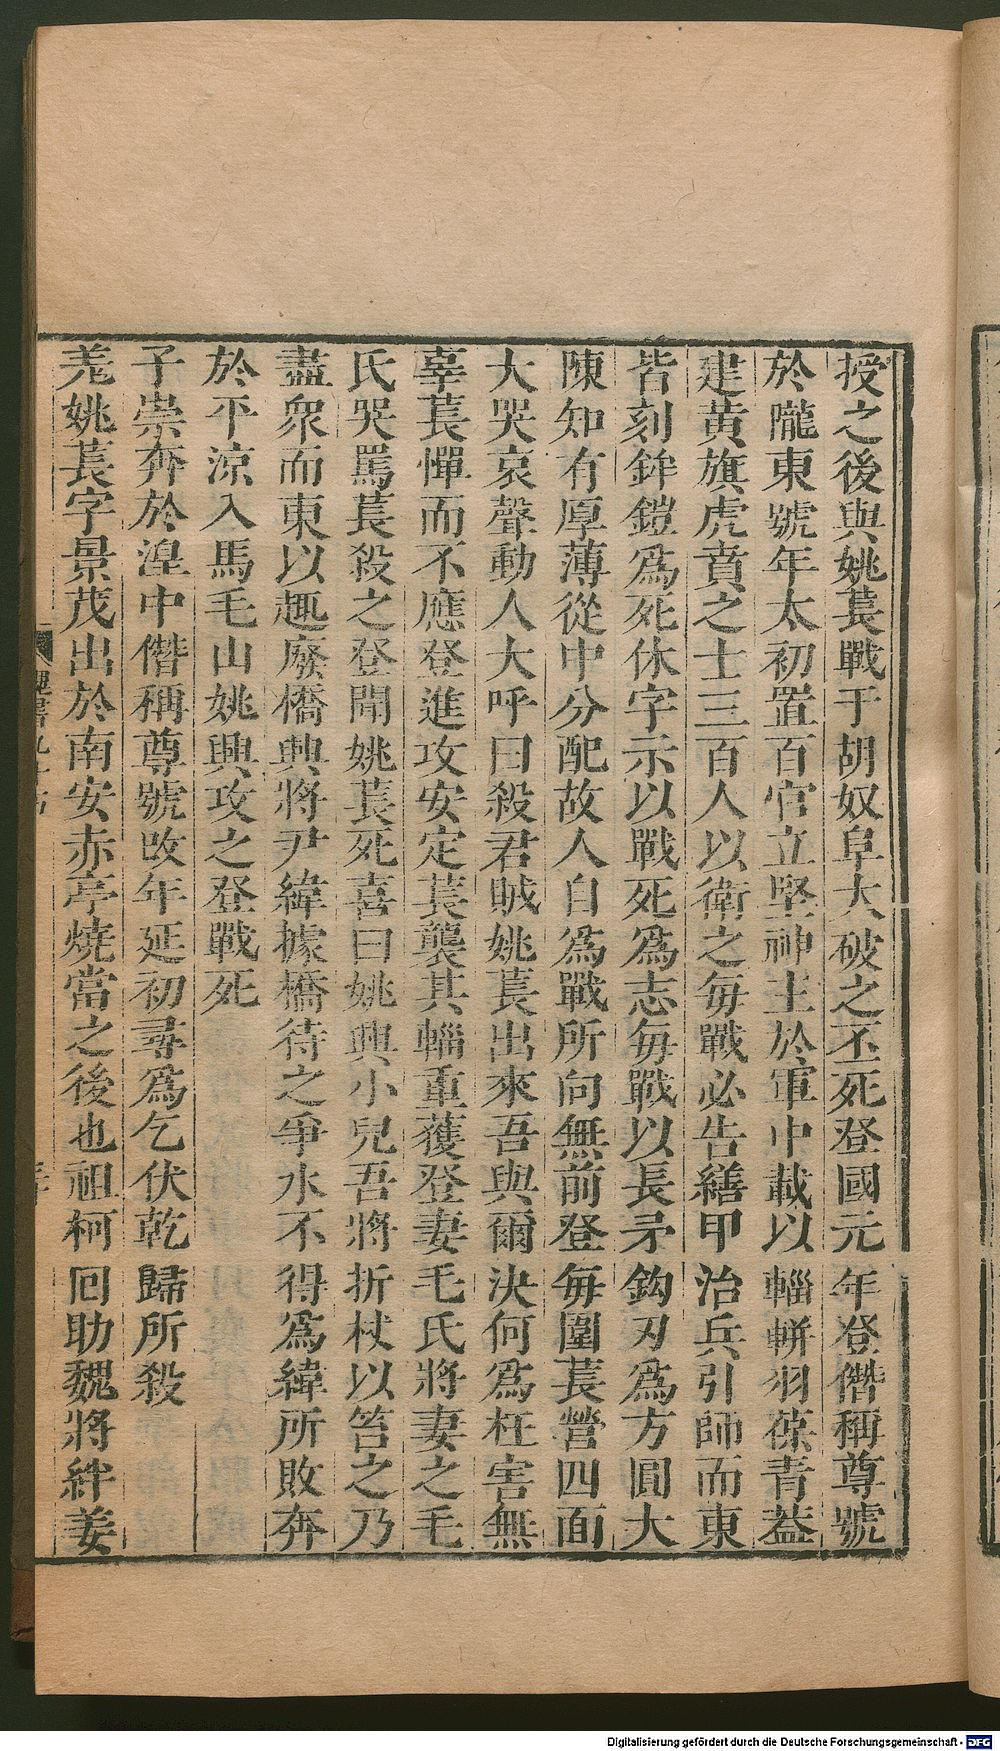 授之後與姚萇戰于胡奴阜大破之丕死登國元年登僭稱尊號
於隴東號年太初置百官立堅神主於軍中載以輜輧羽葆青葢
建黄旗虎賁之士三百人以衛之毎戰必告繕甲治兵引師而東
皆刻鉾鎧爲死休字示以戰死爲志毎戰以長矛鈎刃爲方圓大
陳知有厚薄從中分配故人自爲戰所向無前登毎圍萇營四面
大哭哀聲動人大呼曰殺君賊姚萇出來吾與爾決何爲枉害無
辜萇憚而不應登進攻安定萇襲其輜重獲登妻毛氏將妻之毛
氏哭罵萇殺之登聞姚萇死喜曰姚興小兒吾將折杖以笞之乃
盡衆而東以趣廢橋興將尹緯據橋待之爭水不得爲緯所敗奔
於平涼入馬毛山姚興攻之登戰死
子崇奔於湟中僭稱尊號改年延初尋爲乞伏乾歸所殺
羌姚萇字景茂出於南安赤亭燒當之後也祖柯囘助魏將絆姜
魏書九十